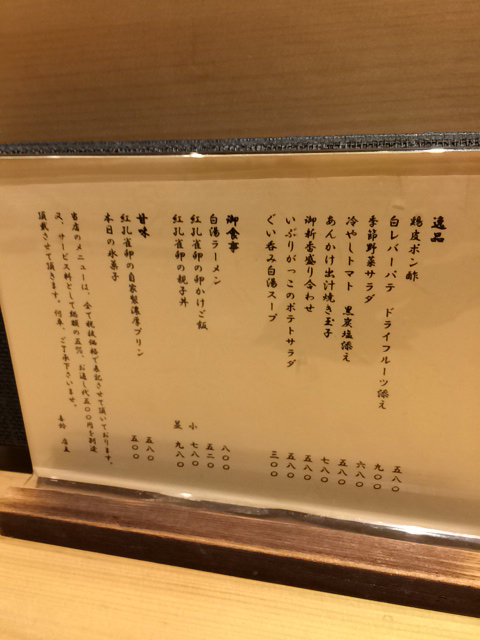 逸品
鶏皮ポン酢 五八〇
白レバーパテ ドライフルーツ添え 九〇〇
季節野菜サラダ 六八〇
冷やしトマト 黒炭塩添え 五八〇
あんかけ出汁焼き玉子 七八〇
御新香盛り合わせ 五八〇
いぶりがっこのポテトサラダ 五八〇
ぐい呑み白湯スープ 三〇〇
御食事
白湯ラーメン 八〇〇
紅孔雀卵の卵かけご飯 五二〇
紅孔雀卵の親子丼 小 七八〇
並 九八〇
甘味
紅孔雀卵の自家製濃厚プリン 五八〇
本日の氷菓子 五〇〇
当店のメニューは、全て税抜価格で表記させて頂いております。
又、サービス料として総額の五%、お通し代五〇〇円を別途
頂戴させて頂きます。何卒、ご了承下さいませ。
店主